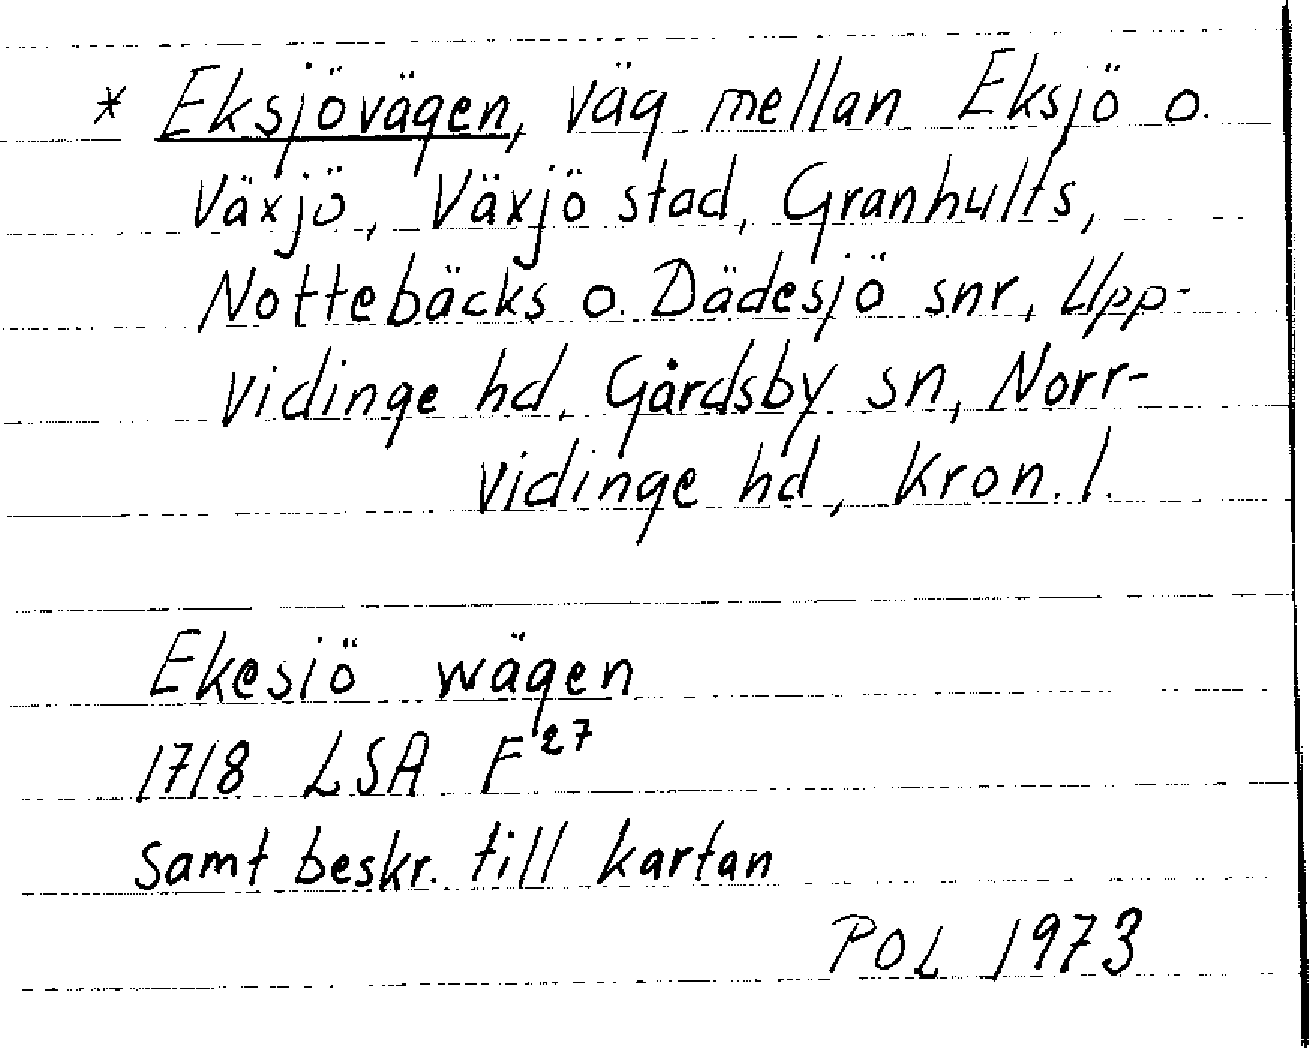 * Eksjövägen, väg mellan Eksjö o.
Växjö, Växjö stad, Granhults,
Nottebäcks o. Dädesjö snr, Upp-
vidinge hd, Gårdsby sn, Norr-
vidinge hd, Kron. l.
Ekesiö wägen
1718 LSA F27
samt beskr. till kartan
POL 1973